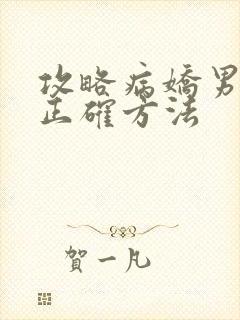 攻略病嬌男
正確方法
賀一凡